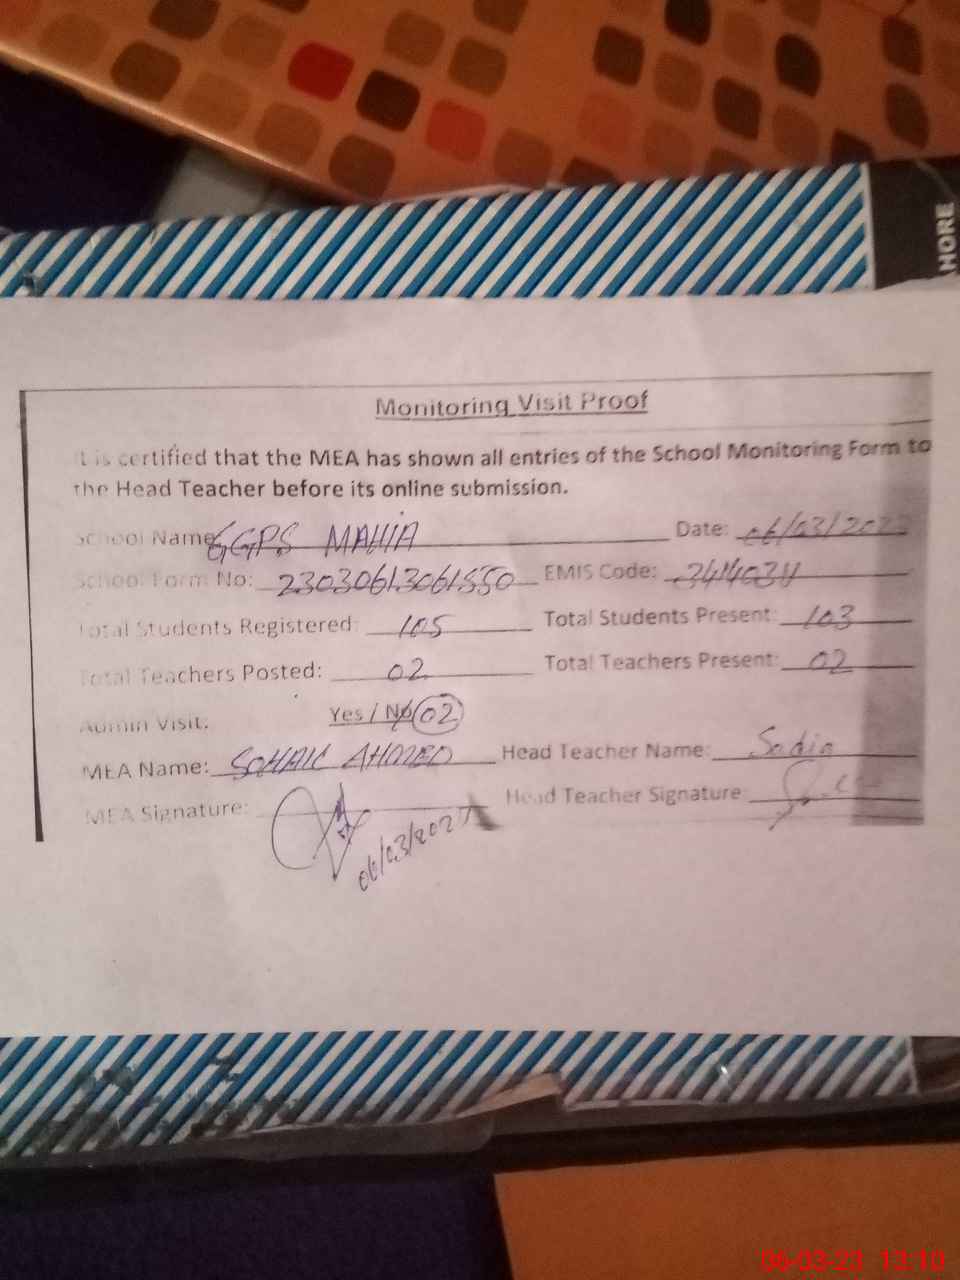 HORE
Monitoring Visit Proof
It is certified that the MEA has shown all entries of the School Monitoring Form to
the Head Teacher before its online submission.
School Name GGPS MAHIA Date: 06/03/202
School Form No: 23030613061550 EMIS Code:
Total Students Registered: 105 Total Students Present: 103
Total Teachers Posted: 02 Total Teachers Present: 02
Admin Visit: Yes / No 02
MEA Name: SOHAIL AHMED Head Teacher Name: Sadia
MEA Signature: Head Teacher Signature:
06/03/202
06-03-23 13:10